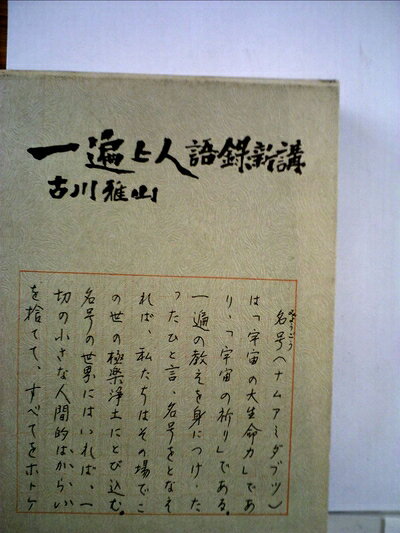 一遍上人語録新講
古川雅山
名号(ナムアミダブツ)
みょうごう
は「宇宙の大生命力」であ
り、「宇宙の祈り」である。
一遍の教えを身につけ、た
ったひと言、名号をとなえ
れば、私たちはその場でこ
の世の極楽浄土にとび込む。
名号の世界にはいれば、一
切の小さな人間的はからい
を捨てて、すべてをホトケ